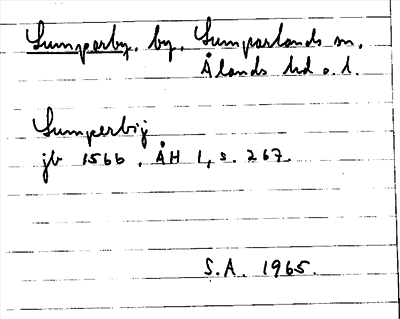 Lumparby, by, Lumparlands sn,
Ålands hd o. l.
Lumperbij
jb 1566, ÅH 1, s. 267.
S.A. 1965.